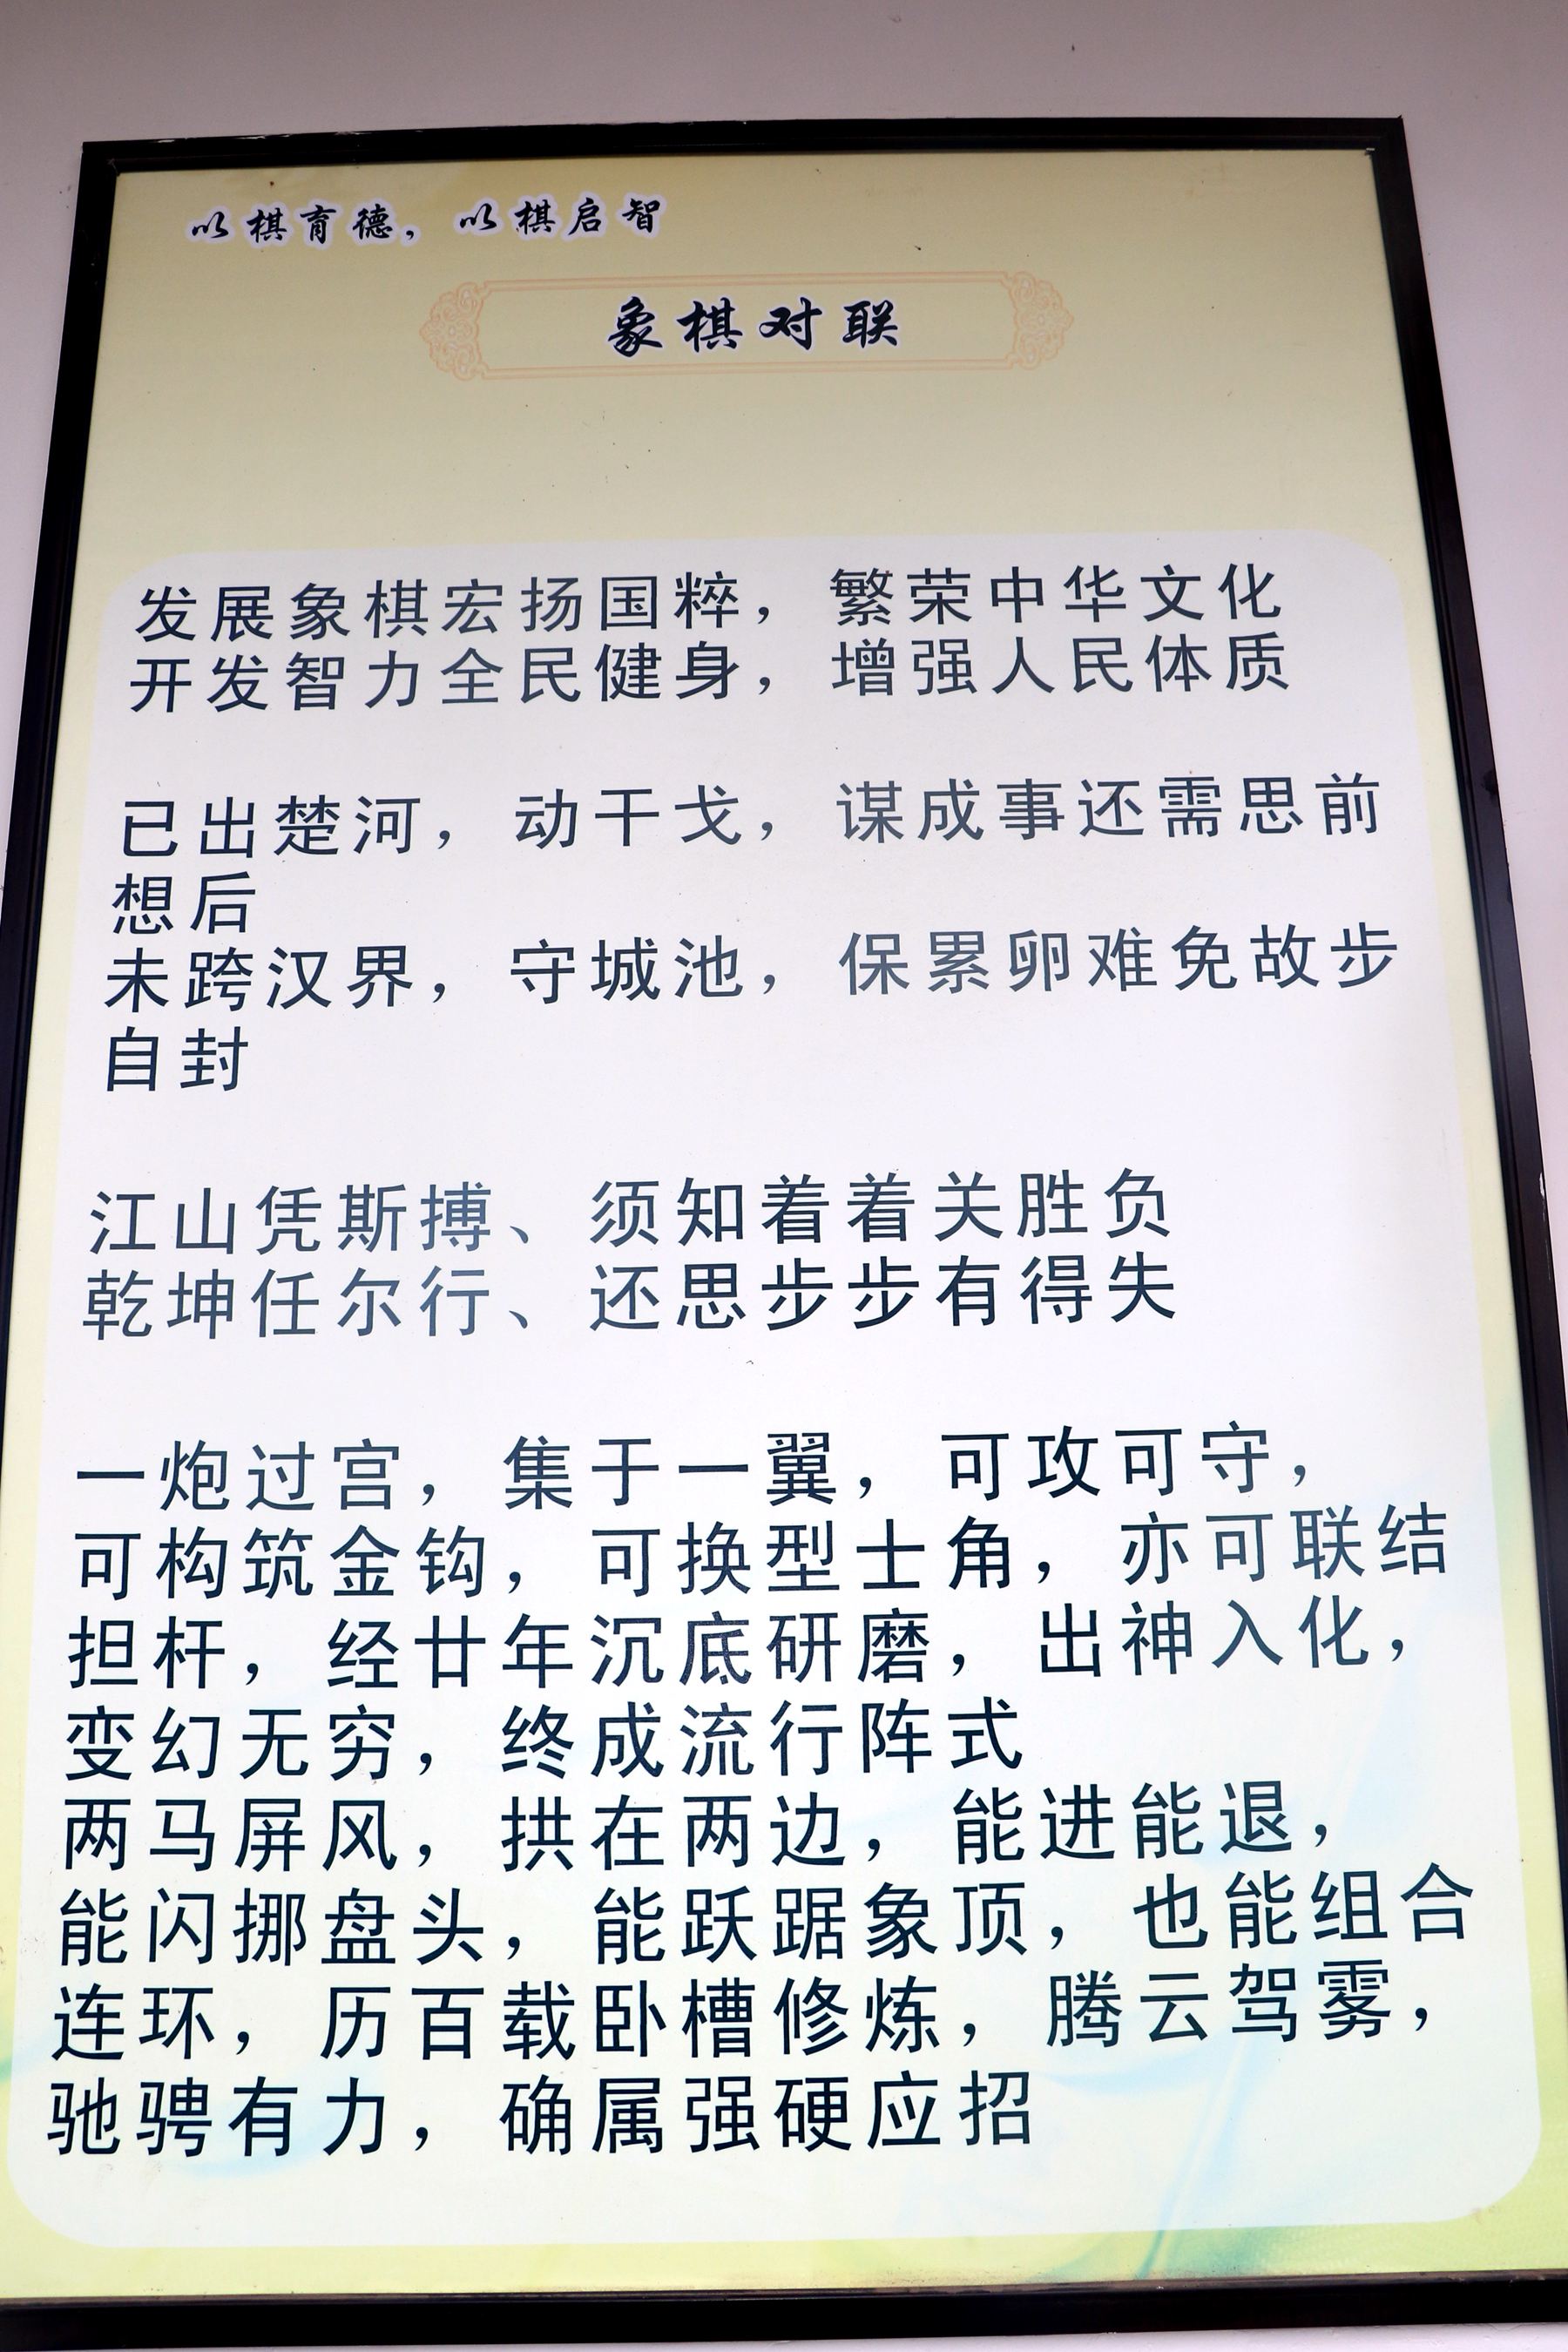 以棋育德，以棋启智
象棋对联
发展象棋宏扬国粹，繁荣中华文化
开发智力全民健身，增强人民体质
已出楚河，动干戈，谋成事还需思前
想后
未跨汉界，守城池，保累卵难免故步
自封
江山凭斯搏、须知着着关胜负
乾坤任尔行、还思步步有得失
一炮过宫，集于一翼，可攻可守，
可构筑金钩，可换型士角，亦可联结
担杆，经廿年沉底研磨，出神入化，
变幻无穷，终成流行阵式
两马屏风，拱在两边，能进能退，
能闪挪盘头，能跃踞象顶，也能组合
连环，历百载卧槽修炼，腾云驾雾，
驰骋有力，确属强硬应招